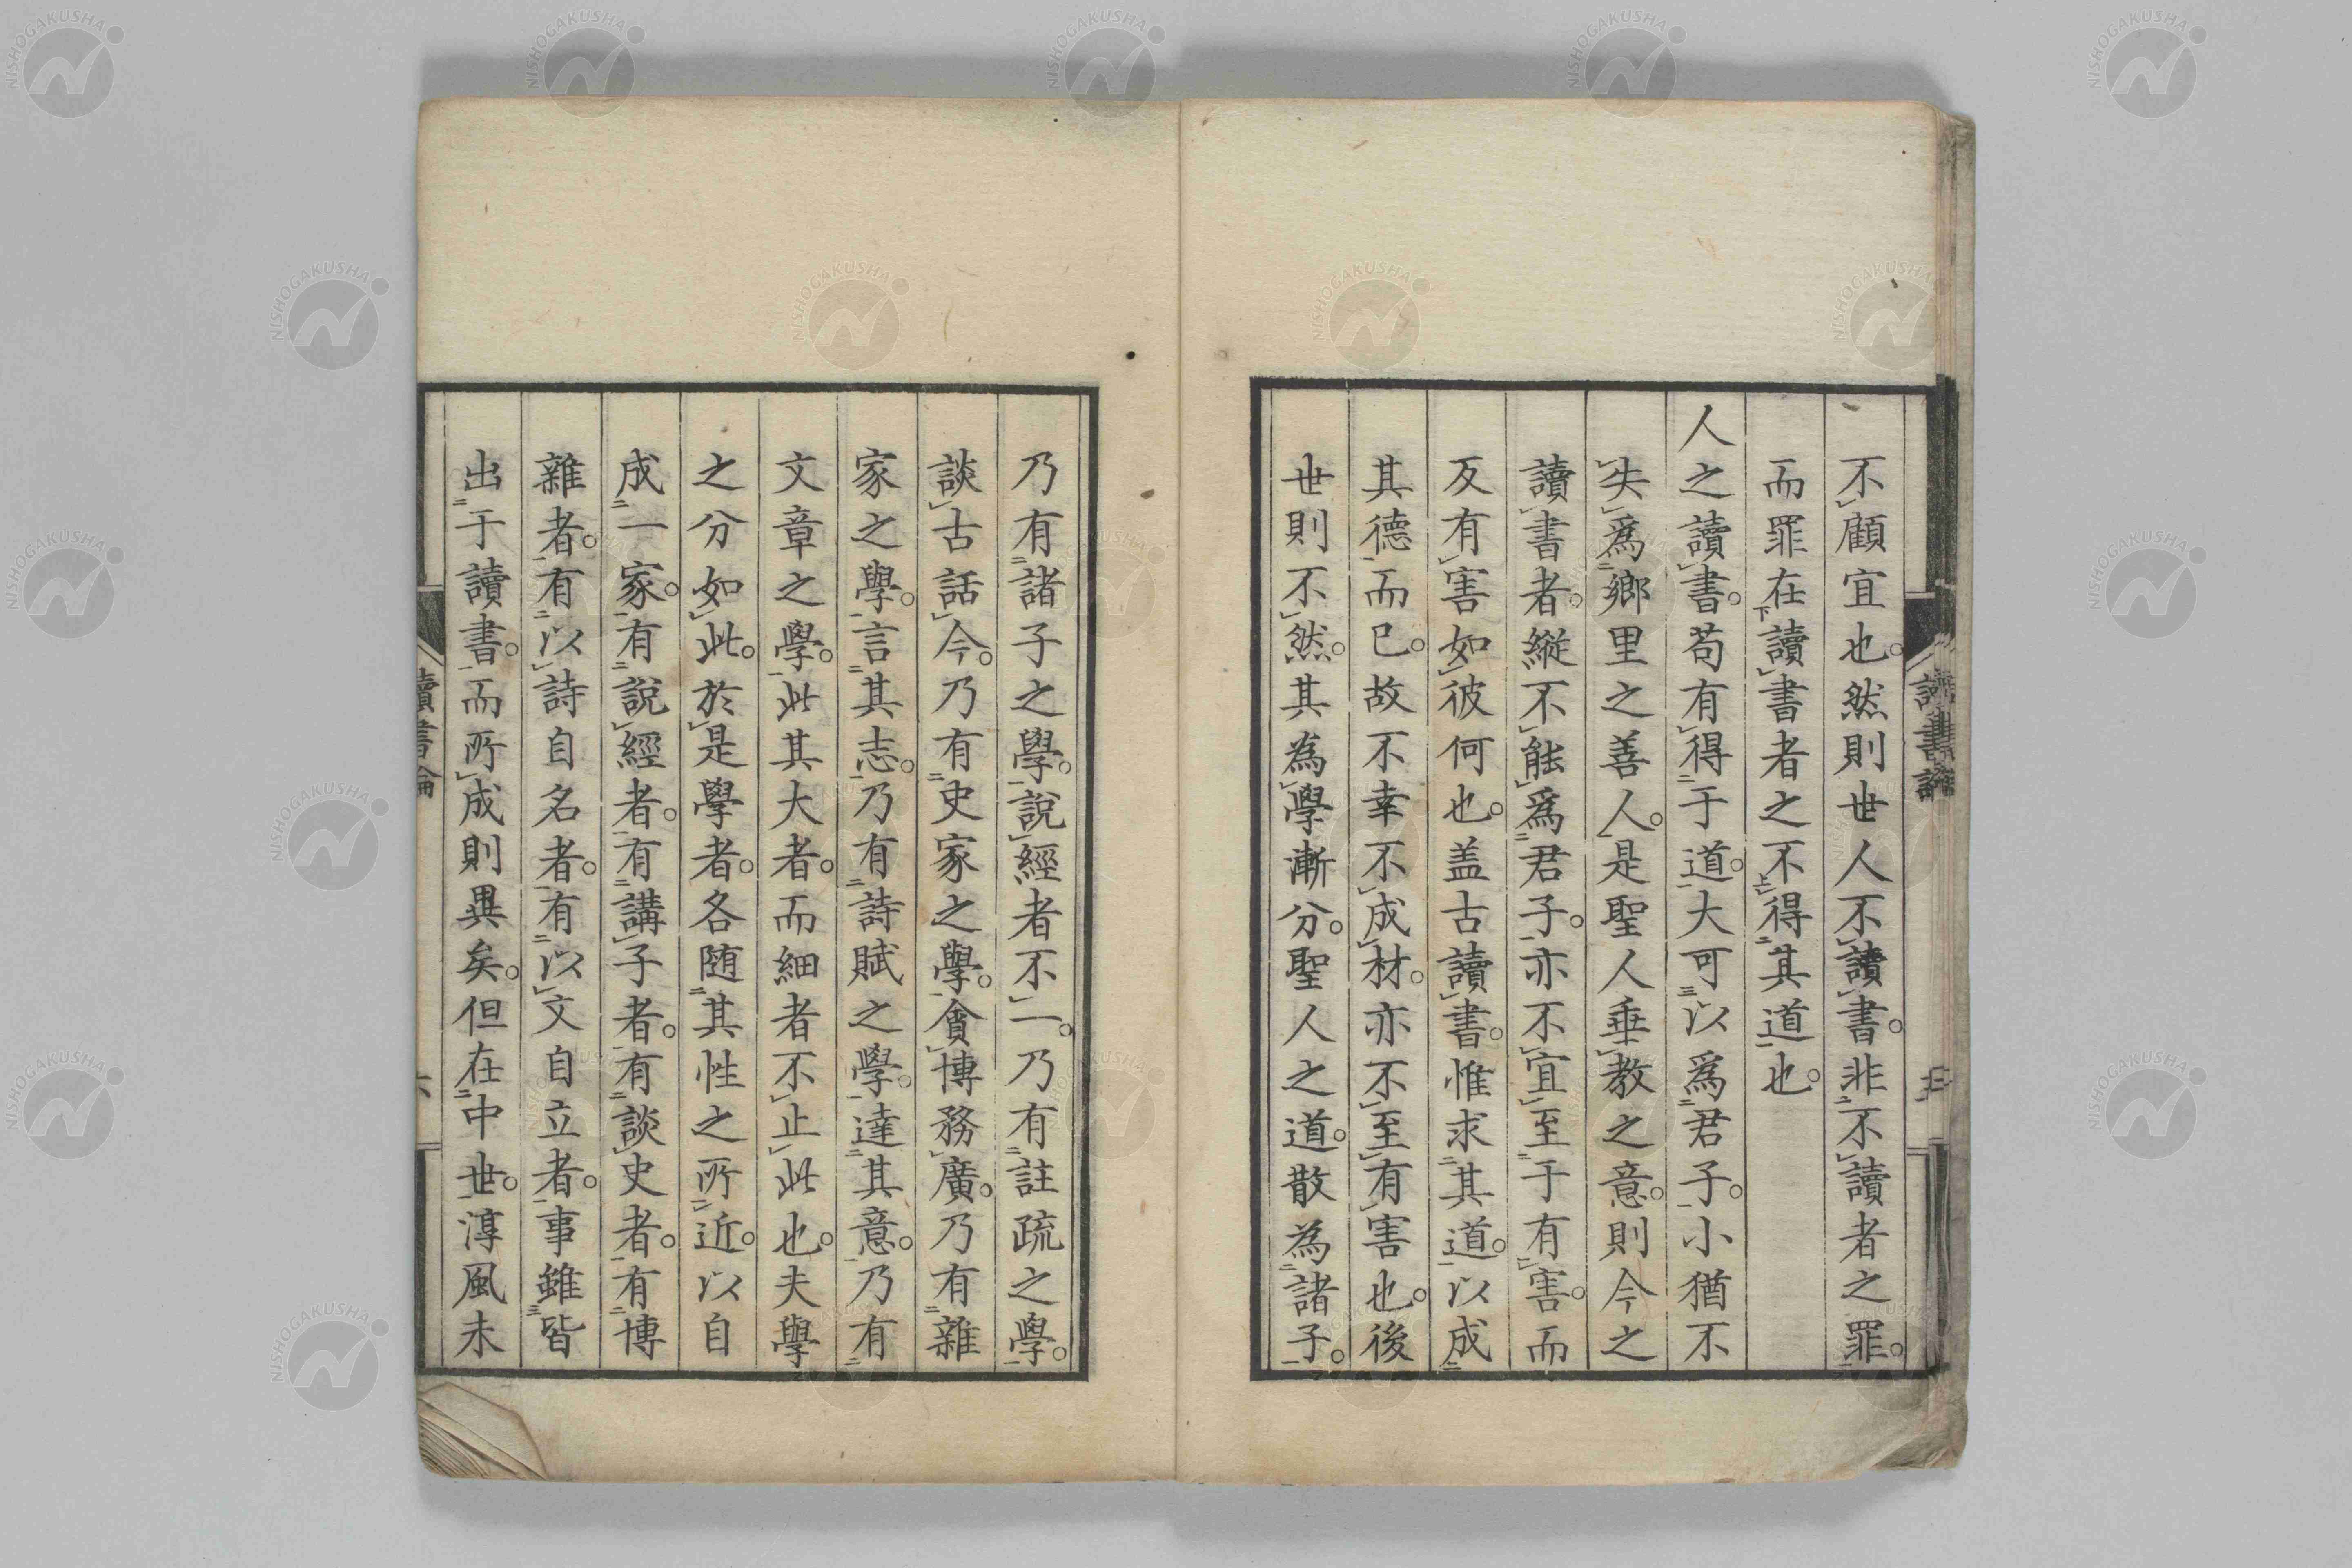 不顧宜也。然則世人不讀書。非不讀者之罪。
而罪在讀書者之不得其道也。
人之讀書。苟有得于道。大可以爲君子。小猶不
失爲鄉里之善人。是聖人垂教之意。則今之
讀書者。縦不能爲君子。亦不宜至于有害。而
反有害如彼何也。盖古讀書。惟求其道。以成
其德而已。故不幸不成材。亦不至有害也。後
世則不然。其為學漸分。聖人之道。散為諸子。
讀書論
乃有諸子之學。說經者不一。乃有註疏之學。
談古話今。乃有史家之學。貪博務廣。乃有雜
家之學。言其志。乃有詩賦之學。達其意。乃有
文章之學。此其大者。而細者不止此也。夫學
之分如此。於是學者。各随其性之所近。以自
成一家。有說經者。有講子者。有談史者。有博
雜者。有以詩自名者。有以文自立者。事雖皆
出于讀書。而所成則異矣。但在中世。淳風未
讀書論
六
NISHOGAKUSHA